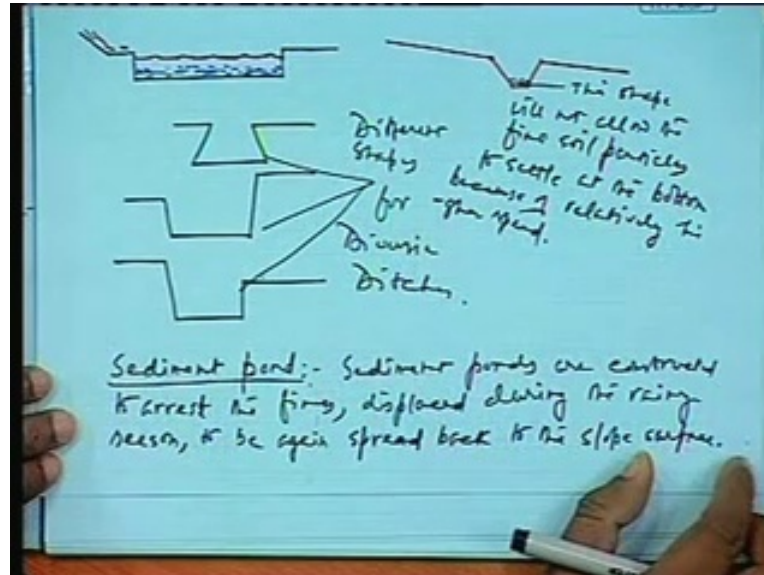 This shape
will not allow the
fine soil particles
to settle at the bottom
because of relatively
speed.
Different
Shapes
for
Diversion
Ditches.
Sediment pond:- Sediment ponds are constructed
to arrest the fines, displaced during the rainy
season, to be again spread back to the slope surface.